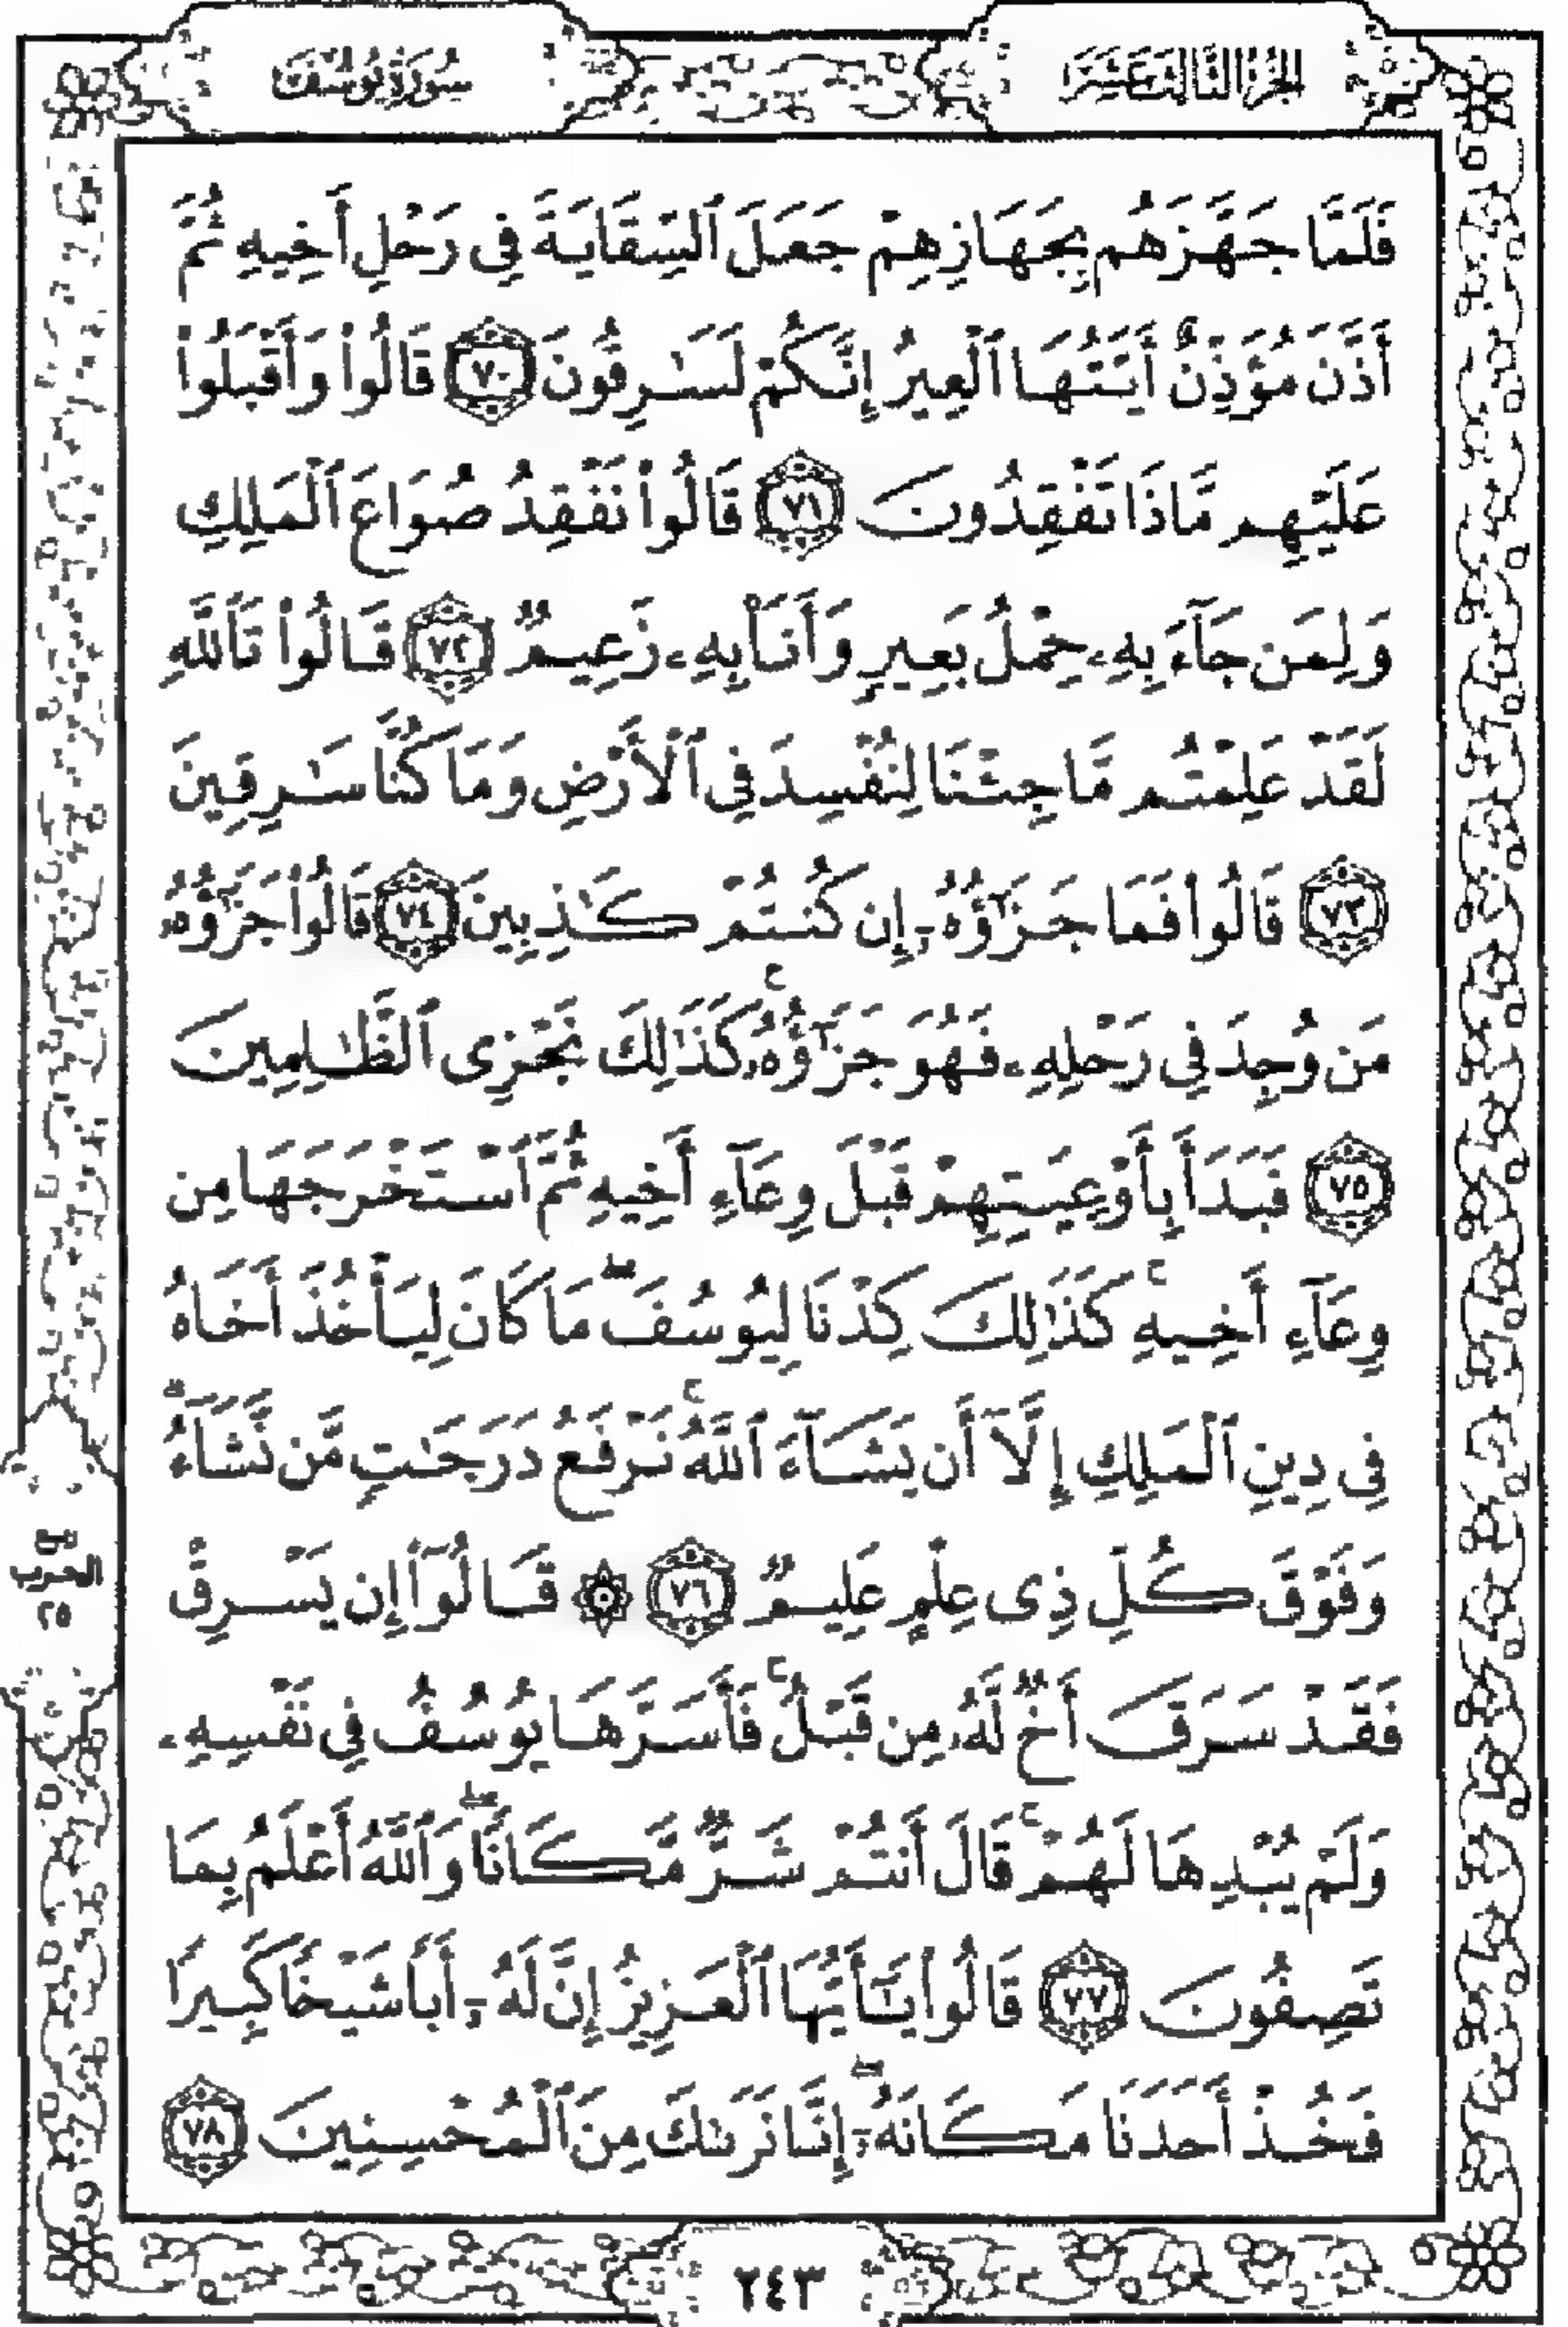 الجزء الثالث عشر
سورة يوسف
فَلَمَّا جَهَّزَهُم بِجَهَازِهِمْ جَعَلَ ٱلسِّقَايَةَ فِى رَحْلِ أَخِيهِ ثُمَّ
أَذَّنَ مُؤَذِّنٌ أَيَّتُهَا ٱلْعِيرُ إِنَّكُمْ لَسَٰرِقُونَ ٧٠ قَالُوا۟ وَأَقْبَلُوا۟
عَلَيْهِم مَّاذَا تَفْقِدُونَ ٧١ قَالُوا۟ نَفْقِدُ صُوَاعَ ٱلْمَلِكِ
وَلِمَن جَآءَ بِهِۦ حِمْلُ بَعِيرٍ وَأَنَا۠ بِهِۦ زَعِيمٌ ٧٢ قَالُوا۟ تَٱللَّهِ
لَقَدْ عَلِمْتُم مَّا جِئْنَا لِنُفْسِدَ فِى ٱلْأَرْضِ وَمَا كُنَّا سَٰرِقِينَ
٧٣ قَالُوا۟ فَمَا جَزَٰٓؤُهُۥٓ إِن كُنتُمْ كَٰذِبِينَ ٧٤ قَالُوا۟ جَزَٰٓؤُهُۥ
مَن وُجِدَ فِى رَحْلِهِۦ فَهُوَ جَزَٰٓؤُهُۥ ۚ كَذَٰلِكَ نَجْزِى ٱلظَّٰلِمِينَ
٧٥ فَبَدَأَ بِأَوْعِيَتِهِمْ قَبْلَ وِعَآءِ أَخِيهِ ثُمَّ ٱسْتَخْرَجَهَا مِن
وِعَآءِ أَخِيهِ ۚ كَذَٰلِكَ كِدْنَا لِيُوسُفَ ۖ مَا كَانَ لِيَأْخُذَ أَخَاهُ
فِى دِينِ ٱلْمَلِكِ إِلَّآ أَن يَشَآءَ ٱللَّهُ ۚ نَرْفَعُ دَرَجَٰتٍ مَّن نَّشَآءُ ۗ
وَفَوْقَ كُلِّ ذِى عِلْمٍ عَلِيمٌ ٧٦ ۞ قَالُوٓا۟ إِن يَسْرِقْ
فَقَدْ سَرَقَ أَخٌ لَّهُۥ مِن قَبْلُ ۚ فَأَسَرَّهَا يُوسُفُ فِى نَفْسِهِۦ
وَلَمْ يُبْدِهَا لَهُمْ ۚ قَالَ أَنتُمْ شَرٌّ مَّكَانًا ۖ وَٱللَّهُ أَعْلَمُ بِمَا
تَصِفُونَ ٧٧ قَالُوا۟ يَٰٓأَيُّهَا ٱلْعَزِيزُ إِنَّ لَهُۥٓ أَبًا شَيْخًا كَبِيرًا
فَخُذْ أَحَدَنَا مَكَانَهُۥٓ ۖ إِنَّا نَرَىٰكَ مِنَ ٱلْمُحْسِنِينَ ٧٨
الحزب
٢٥
٢٤٣